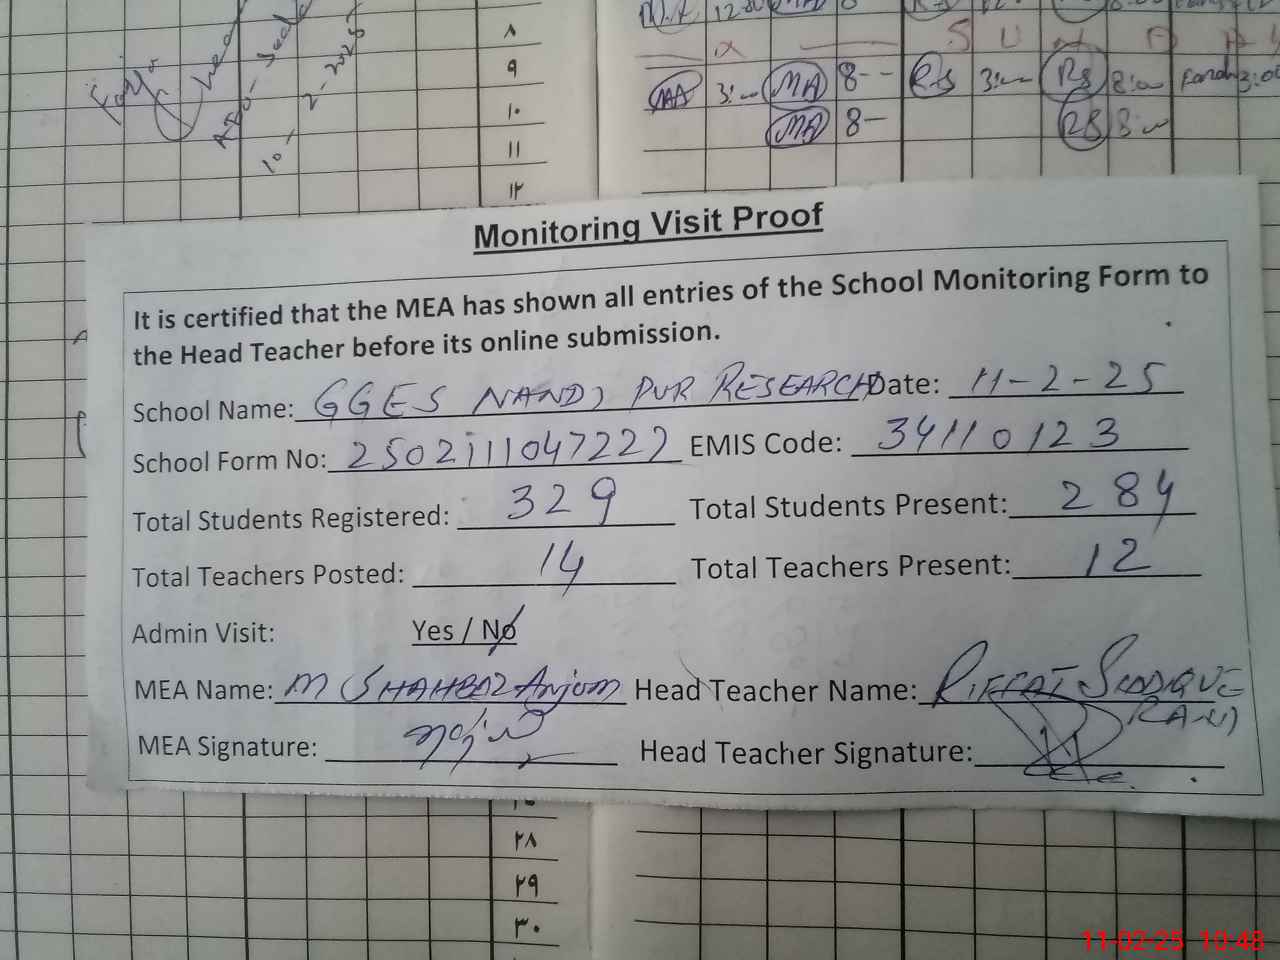 10-2-2025
۸
۹
۱۰
۱۱
۱۲
S U
MA 3:00 MA 8-- RS 3:00 RS 8:00 Farah 3:00
MA 8- RS 8:00
Monitoring Visit Proof
It is certified that the MEA has shown all entries of the School Monitoring Form to
the Head Teacher before its online submission.
School Name: GGES NANDI PUR RESEARCH Date: 11-2-25
School Form No: 2502111047222 EMIS Code: 34110123
Total Students Registered: 329 Total Students Present: 284
Total Teachers Posted: 14 Total Teachers Present: 12
Admin Visit: Yes / No
MEA Name: M SHAHBAZ Anjum Head Teacher Name: RIFFAT SIDDIQUE
RANI
MEA Signature: Head Teacher Signature:
۲۸
۲۹
۳۰
11-02-25 10:48